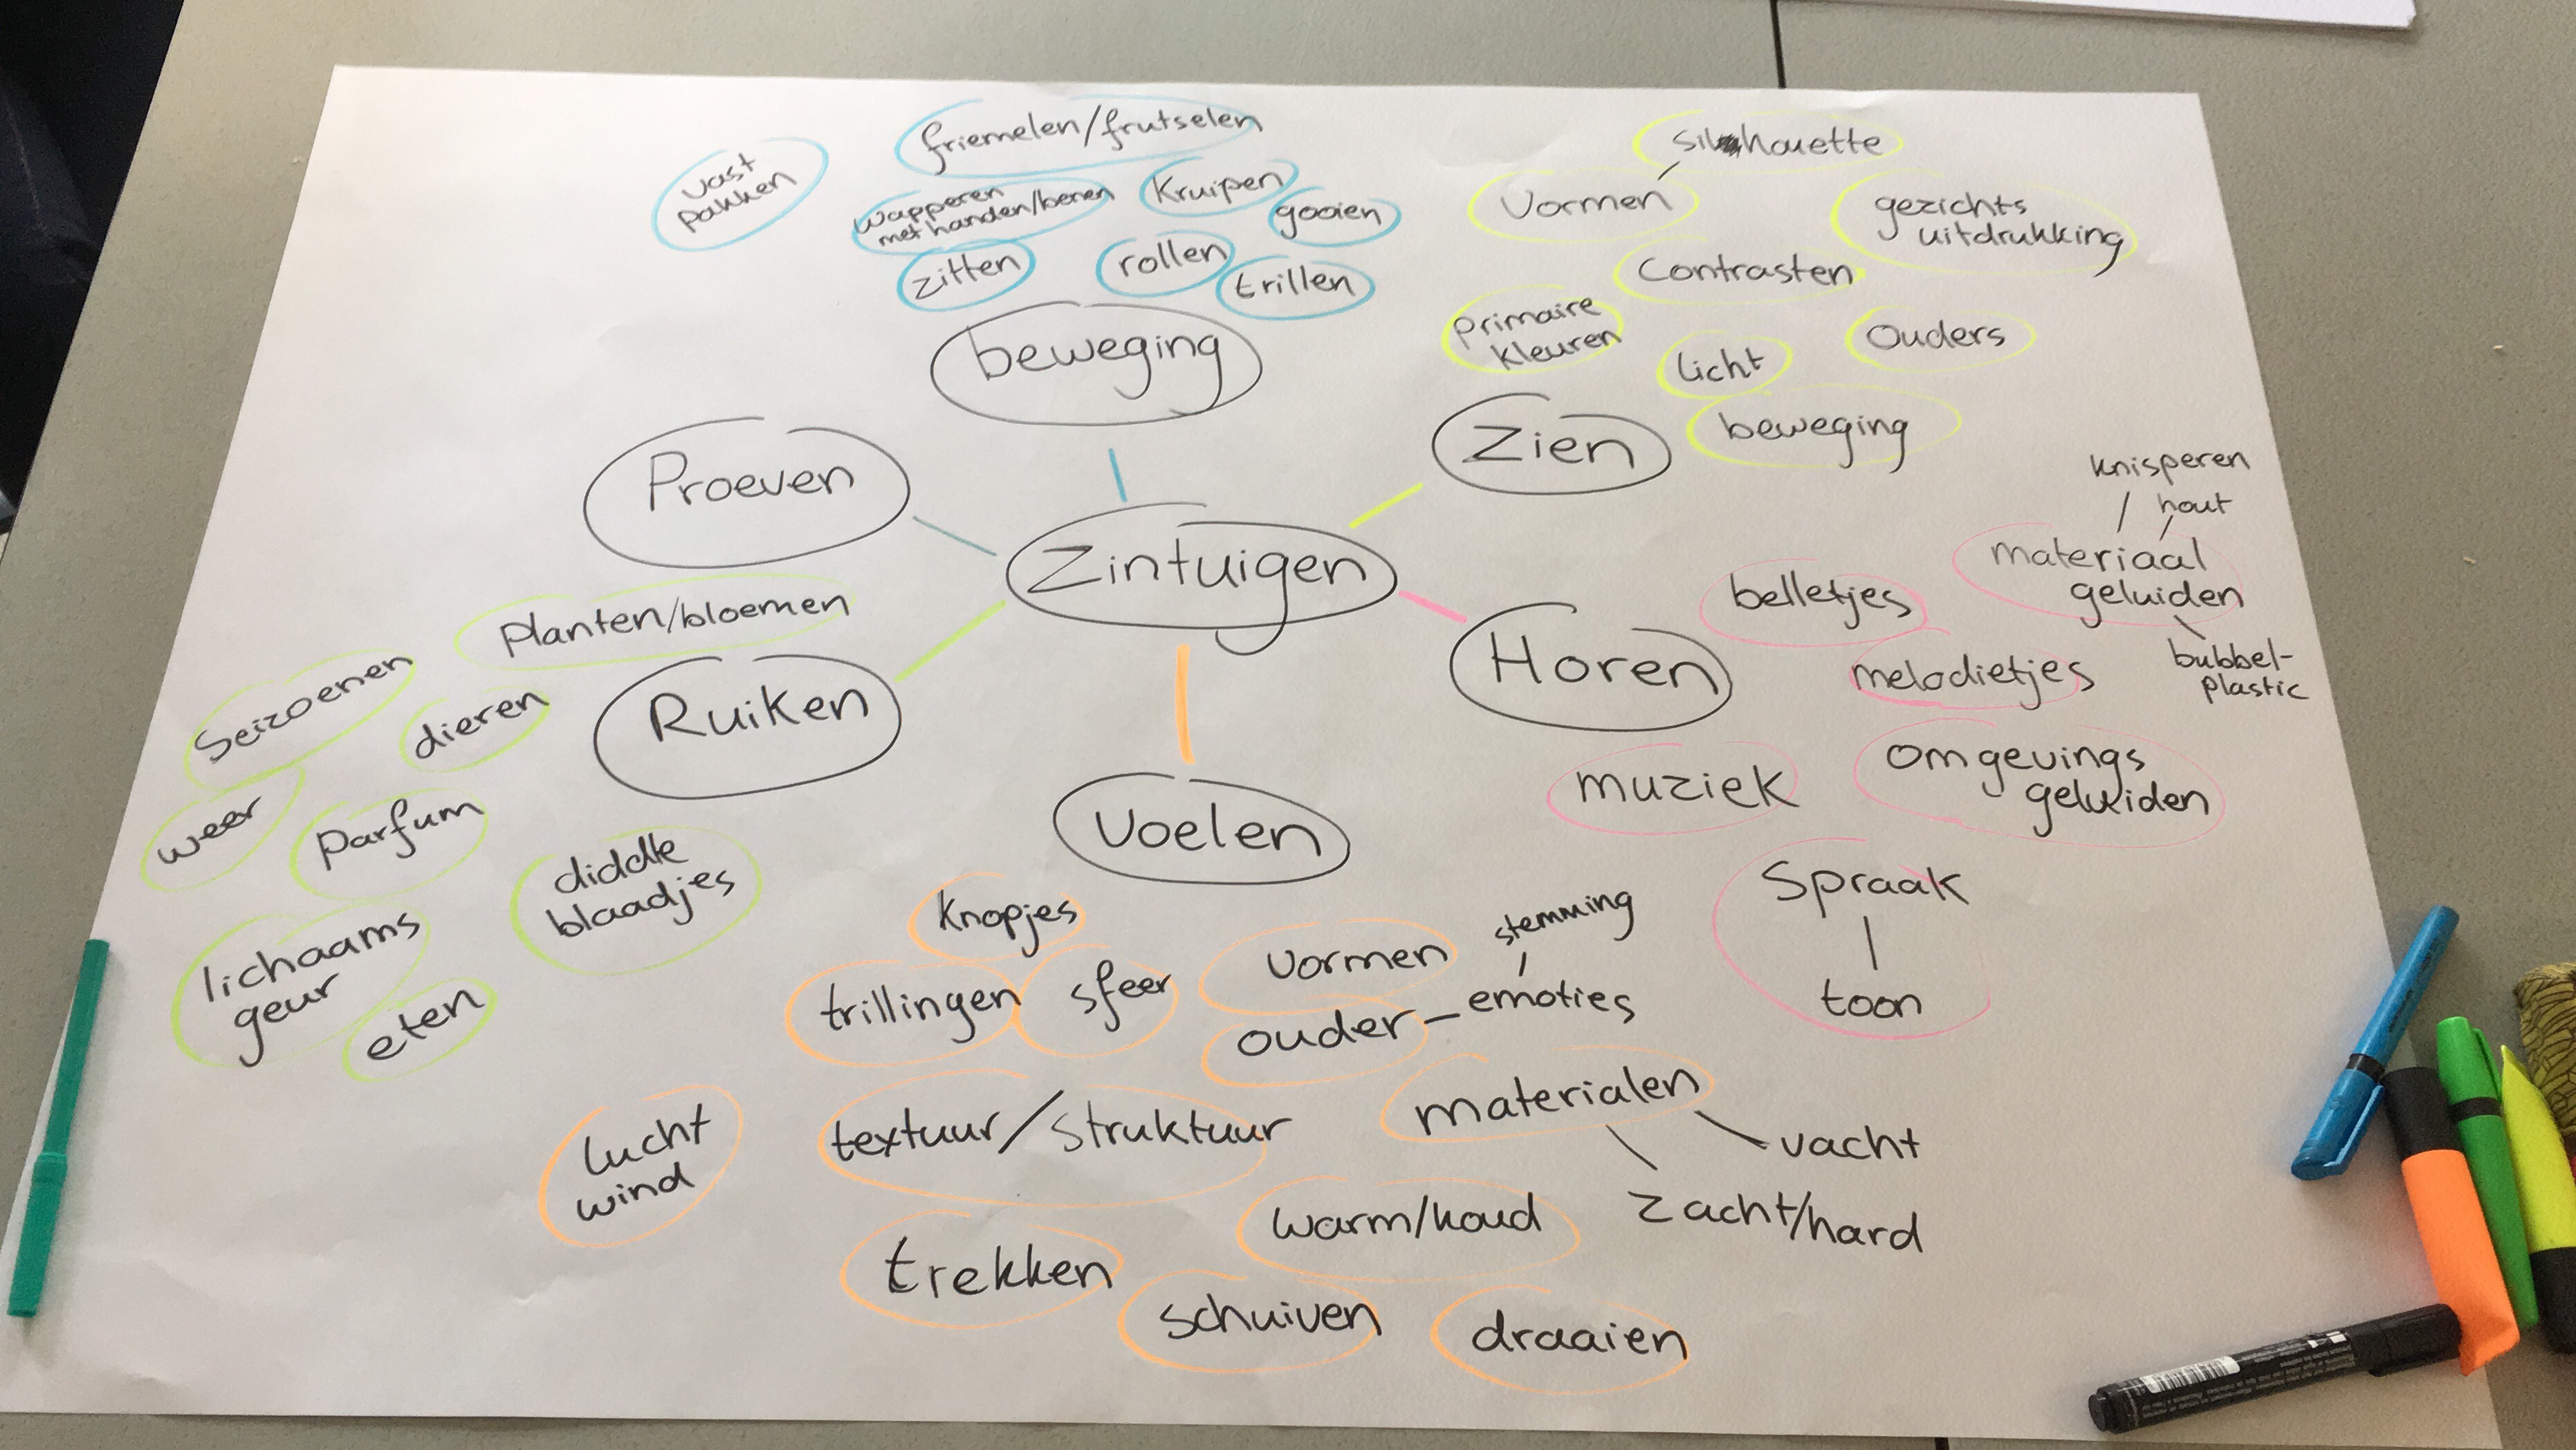 friemelen/frutselen
vast
pakken
wapperen
met handen/benen
Kruipen
gooien
zitten
rollen
trillen
beweging
silhouette
Vormen
gezichts
uitdrukking
Contrasten
Primaire
kleuren
licht
Ouders
Zien
beweging
Proeven
Zintuigen
knisperen
hout
materiaal
geluiden
bubbel-
plastic
belletjes
Horen
melodietjes
muziek
omgevings
geluiden
Spraak
toon
Planten/bloemen
Seizoenen
dieren
Ruiken
weer
Parfum
diddle
blaadjes
lichaams
geur
eten
Voelen
Knopjes
trillingen
sfeer
Vormen
stemming
ouder - emoties
materialen
vacht
zacht/hard
lucht
wind
textuur/struktuur
warm/koud
trekken
schuiven
draaien